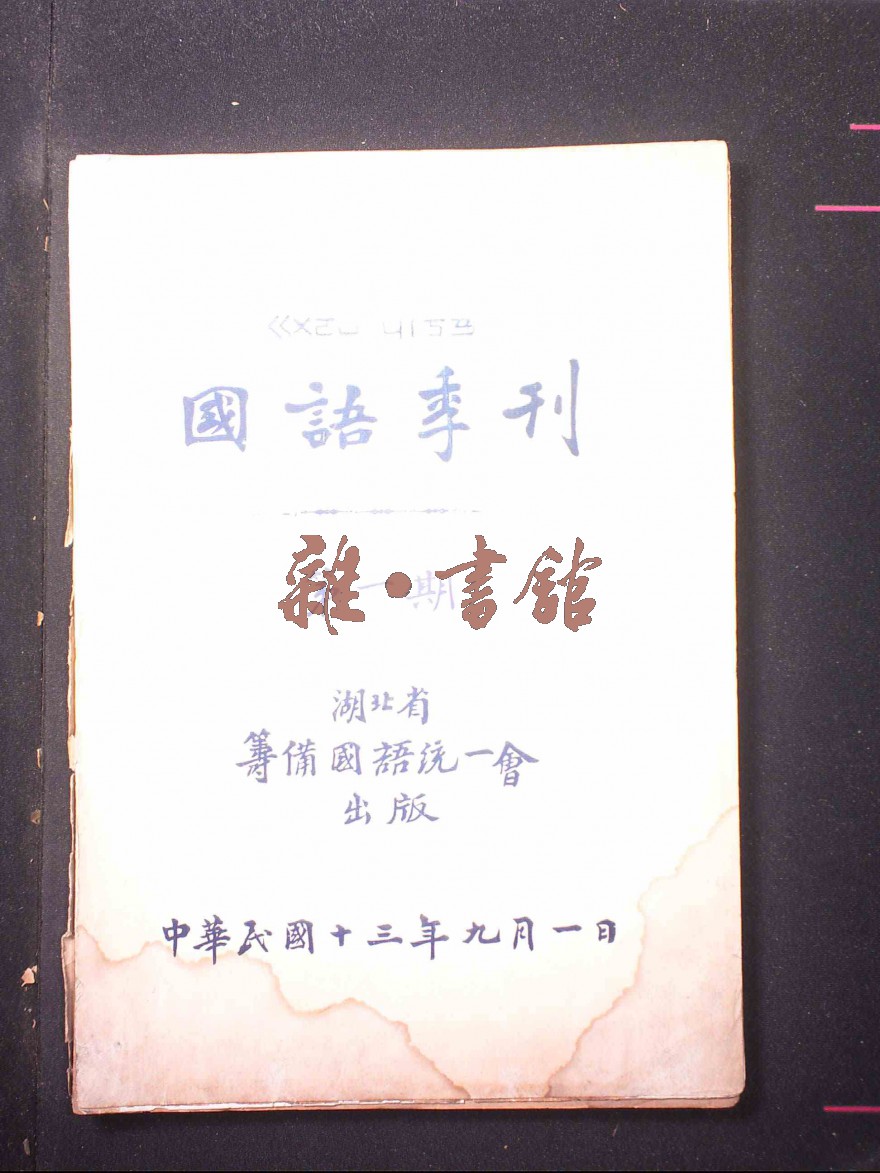 ㄍㄨㄛㄩ ㄐㄧㄎㄢ
國語季刊
第一期
雜·書館
湖北省
籌備國語統一會
出版
中華民國十三年九月一日